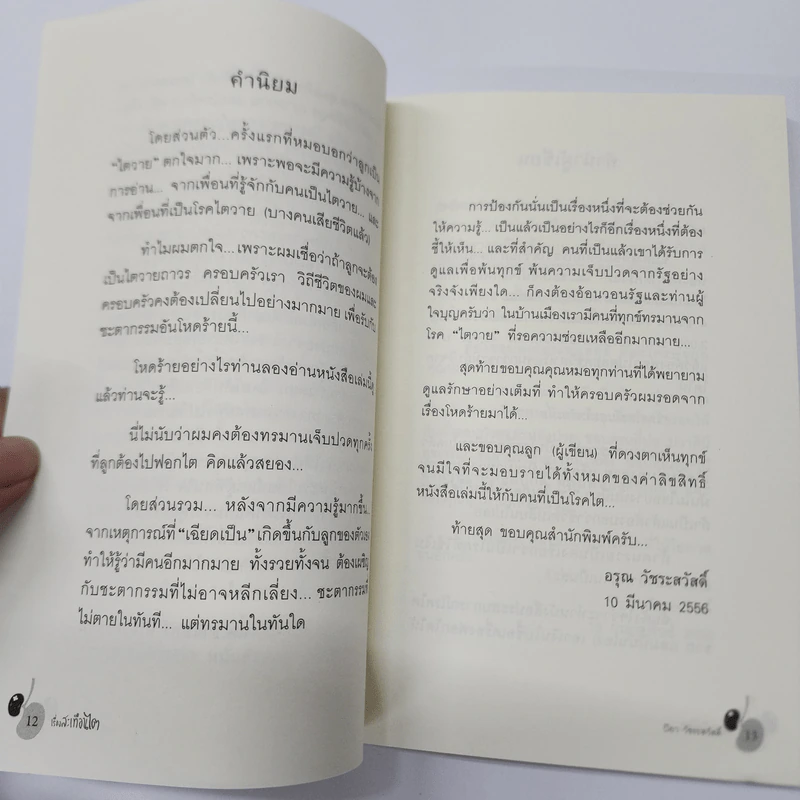 คำนิยม
โดยส่วนตัว... ครั้งแรกที่หมอบอกว่าลูกจะเป็น
“ไตวาย” ตกใจมาก... เพราะพอจะมีความรู้บ้างจาก
การอ่าน... จากเพื่อนที่รู้จักกับคนเป็นไตวาย... และ
จากเพื่อนที่เป็นโรคไตวาย (บางคนเสียชีวิตแล้ว)
ทำไมผมตกใจ... เพราะผมเชื่อว่าถ้าลูกจะต้อง
เป็นไตวายถาวร ครอบครัวเรา วิถีชีวิตของผมและ
ครอบครัวคงต้องเปลี่ยนไปอย่างมากมาย เพื่อรับกับ
ชะตากรรมอันโหดร้ายนี้...
โหดร้ายอย่างไรท่านลองอ่านหนังสือเล่มนี้ดู
แล้วท่านจะรู้...
นี่ไม่นับว่าผมคงต้องทรมานเจ็บปวดทุกครั้ง
ที่ลูกต้องไปฟอกไต คิดแล้วสยอง...
โดยส่วนรวม... หลังจากมีความรู้มากขึ้น...
จากเหตุการณ์ที่ “เฉียดเป็น” เกิดขึ้นกับลูกของตัวเอง
ทำให้รู้ว่ามีคนอีกมากมาย ทั้งรวยทั้งจน ต้องเผชิญ
กับชะตากรรมที่ไม่อาจหลีกเลี่ยง... ชะตากรรมที่
ไม่ตายในทันที... แต่ทรมานในทันใด
12 เรื่องสะเทือนไต
การป้องกันนั่นเป็นเรื่องหนึ่งที่จะต้องช่วยกัน
ให้ความรู้... เป็นแล้วเป็นอย่างไรก็อีกเรื่องหนึ่งที่ต้อง
ชี้ให้เห็น... และที่สำคัญ คนที่เป็นแล้วเขาได้รับการ
ดูแลเพื่อพ้นทุกข์ พ้นความเจ็บปวดจากรัฐอย่าง
จริงจังเพียงใด... ก็คงต้องอ้อนวอนรัฐและท่านผู้
ใจบุญครับว่า ในบ้านเมืองเรามีคนที่ทุกข์ทรมานจาก
โรค “ไตวาย” ที่รอความช่วยเหลืออีกมากมาย...
สุดท้ายขอบคุณคุณหมอทุกท่านที่ได้พยายาม
ดูแลรักษาอย่างเต็มที่ ทำให้ครอบครัวผมรอดจาก
เรื่องโหดร้ายมาได้...
และขอบคุณลูก (ผู้เขียน) ที่ดวงตาเห็นทุกข์
จนมีใจที่จะมอบรายได้ทั้งหมดของค่าลิขสิทธิ์
หนังสือเล่มนี้ให้กับคนที่เป็นโรคไต...
ท้ายสุด ขอบคุณสำนักพิมพ์ครับ...
อรุณ วัชระสวัสดิ์
10 มีนาคม 2556
วัชระสวัสดิ์ 13